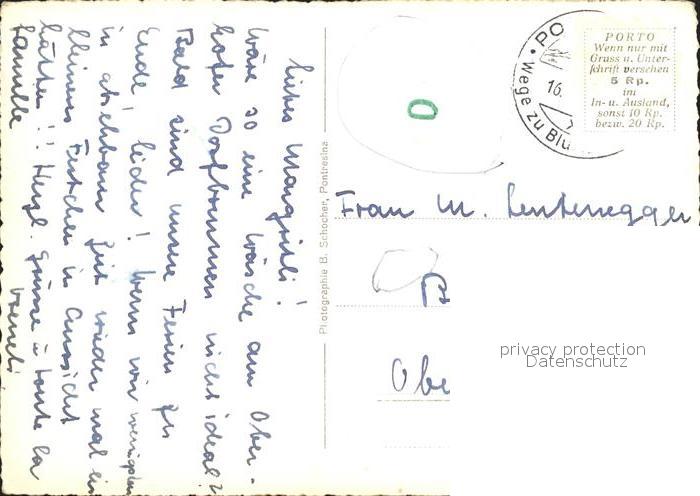 Liebes Margritli!
Wäre so eine Wäsche am Ober-
hofer Dorfbrunnen nicht ideal?
Bald sind unsere Ferien zu
Ende, leider! Wenn wir wenigstens
in absehbarer Zeit wieder mal ein
kleines Festchen in Aussicht
hätten!! Herzl. Grüsse à toute la
famille
Photographie B. Schocher, Pontresina
PO
Wege zu Blu
16.
PORTO
Wenn nur mit
Gruss u. Unter-
schrift versehen
5 Rp.
im
In- u. Ausland,
sonst 10 Rp.
bezw. 20 Rp.
0
Frau M. Lentenegger
Obe
privacy protection
Datenschutz